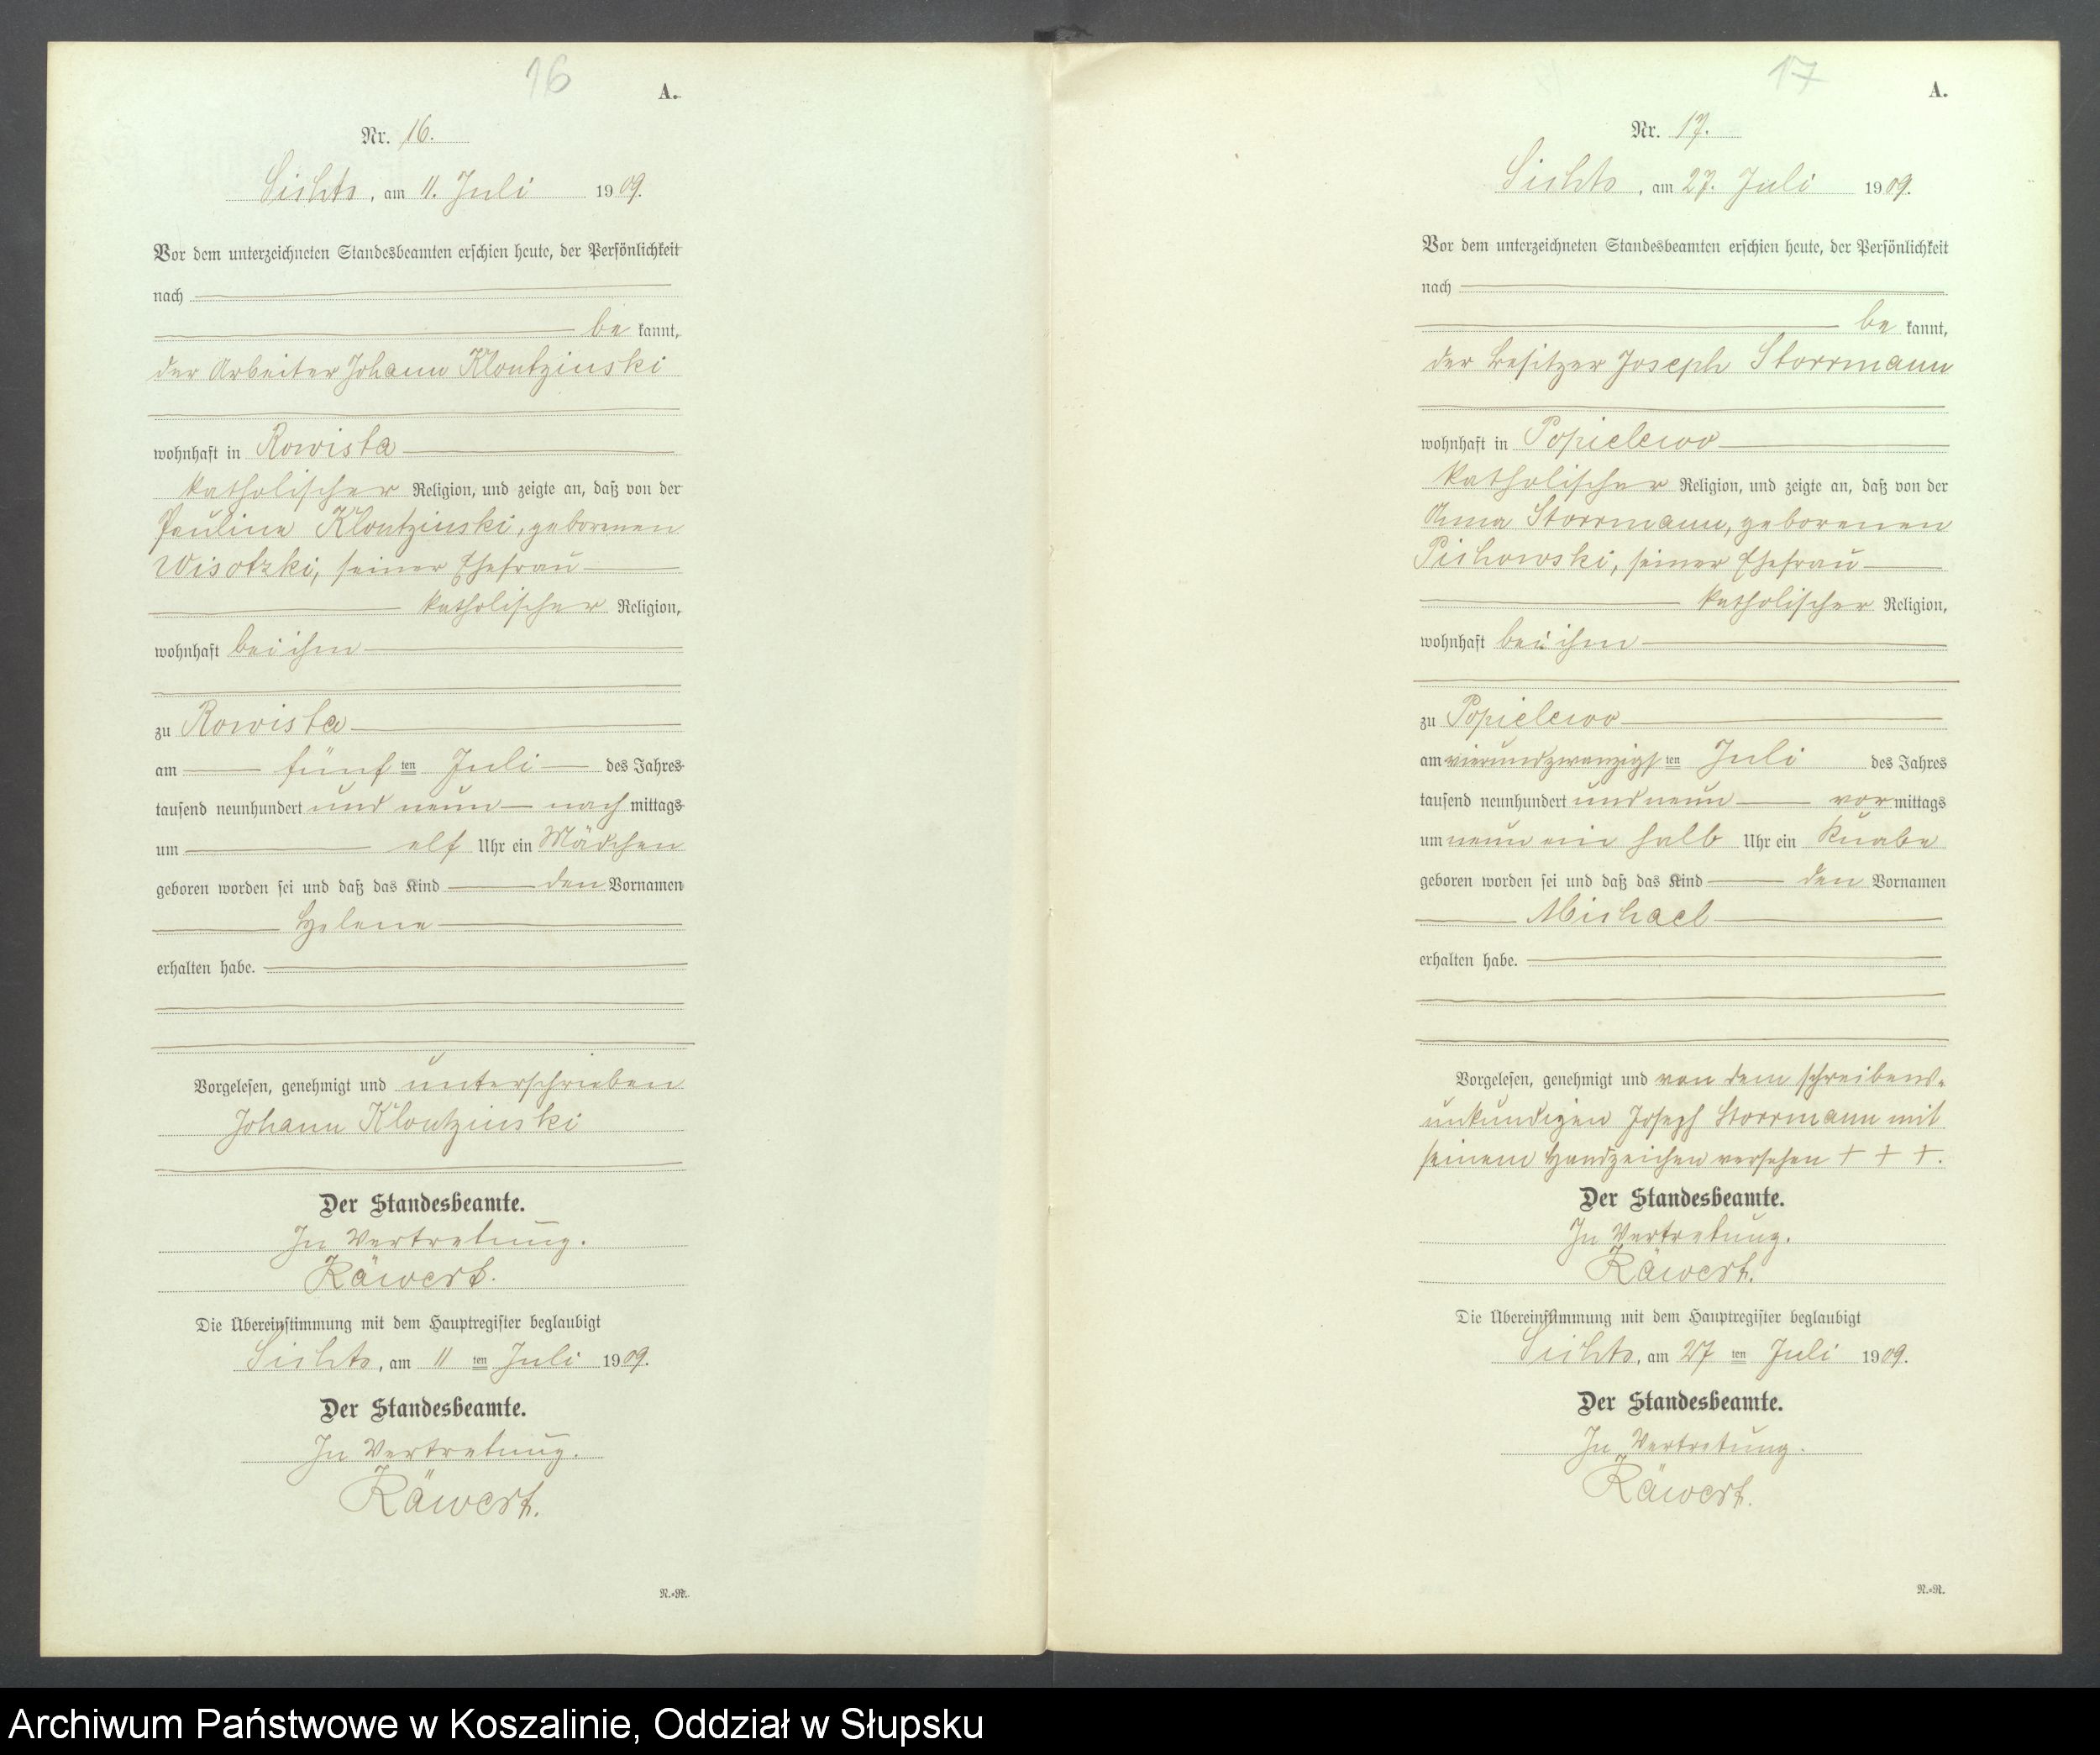 16
A.
Nr. 16.
Sichts, am 11. Juli 1909.
Vor dem unterzeichneten Standesbeamten erschien heute, der Persönlichkeit
nach
be kannt,
der Arbeiter Johann Klontzinski
wohnhaft in Rowista
katholischer Religion, und zeigte an, daß von der
Pauline Klontzinski, geborenen
Wisotzki, seiner Ehefrau
katholischer Religion,
wohnhaft bei ihm
zu Rowista
am fünf ten Juli des Jahres
tausend neunhundert und neun nach mittags
um elf Uhr ein Mädchen
geboren worden sei und daß das Kind den Vornamen
Helene
erhalten habe.
Vorgelesen, genehmigt und unterschrieben
Johann Klontzinski
Der Standesbeamte.
In Vertretung.
Räwert.
Die Übereinstimmung mit dem Hauptregister beglaubigt
Sichts, am 11 ten Juli 1909.
Der Standesbeamte.
In Vertretung.
Räwert.
N.=R.
17
A.
Nr. 17.
Sichts, am 27. Juli 1909.
Vor dem unterzeichneten Standesbeamten erschien heute, der Persönlichkeit
nach
be kannt,
der Besitzer Joseph Storrmann
wohnhaft in Popielewo
katholischer Religion, und zeigte an, daß von der
Anna Storrmann, geborenen
Pichowski, seiner Ehefrau
katholischer Religion,
wohnhaft bei ihm
zu Popielewo
am vierundzwanzigs ten Juli des Jahres
tausend neunhundert und neun vor mittags
um neun ein halb Uhr ein Knabe
geboren worden sei und daß das Kind den Vornamen
Michael
erhalten habe.
Vorgelesen, genehmigt und von dem schreibens-
unkundigen Joseph Storrmann mit
seinem Handzeichen versehen + + +.
Der Standesbeamte.
In Vertretung.
Räwert.
Die Übereinstimmung mit dem Hauptregister beglaubigt
Sichts, am 27 ten Juli 1909.
Der Standesbeamte.
In Vertretung.
Räwert.
N.=R.
Archiwum Państwowe w Koszalinie, Oddział w Słupsku